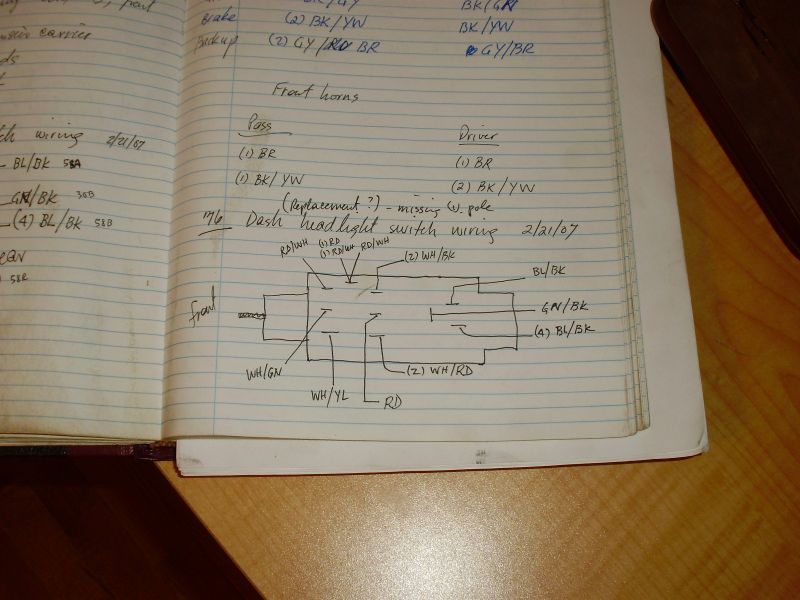 part
carrier
ds
wiring 2/21/07
BL/BK 58A
GN/BK 30B
(4) BL/BK 58B
ear
58R
BK/GN
Brake (2) BK/YW BK/YW
Backup (2) GY/RD BR GY/BR
Front horns
Pass Driver
(1) BR (1) BR
(1) BK/YW (2) BK/YW
(Replacement?) - missing
Dash headlight switch wiring 2/21/07
RD/WH (1) RD (1) RD/WH RD/WH (2) WH/BK
BL/BK
Front GN/BK
(4) BL/BK
WH/GN (2) WH/RD
WH/YL RD